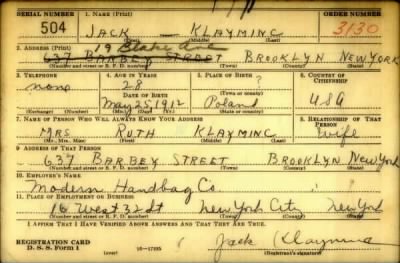 SERIAL NUMBER 1. NAME (Print) ORDER NUMBER
504 JACK — KLAYMINC 3130
(First) (Middle) (Last)
2. ADDRESS (Print) 19 Blake Ave
637 BARBEY STREET BROOKLYN NEW YORK
(Number and street or R. F. D. number) (Town) (County) (State)
3. TELEPHONE 4. AGE IN YEARS 5. PLACE OF BIRTH 6. COUNTRY OF CITIZENSHIP
none 28 ?
DATE OF BIRTH (Town or county)
May 25, 1912 Poland USA
(Exchange) (Number) (Mo.) (Day) (Yr.) (State or country)
7. NAME OF PERSON WHO WILL ALWAYS KNOW YOUR ADDRESS 8. RELATIONSHIP OF THAT PERSON
MRS RUTH KLAYMINC Wife
(Mr., Mrs., Miss) (First) (Middle) (Last)
9. ADDRESS OF THAT PERSON
637 BARBEY STREET BROOKLYN New York
(Number and street or R. F. D. number) (Town) (County) (State)
10. EMPLOYER'S NAME
Modern Handbag Co
11. PLACE OF EMPLOYMENT OR BUSINESS
16 West 32 St New York City New York
(Number and street or R. F. D. number) (Town) (County) (State)
I AFFIRM THAT I HAVE VERIFIED ABOVE ANSWERS AND THAT THEY ARE TRUE.
REGISTRATION CARD
D. S. S. Form 1 16—17105 Jack Klayminc